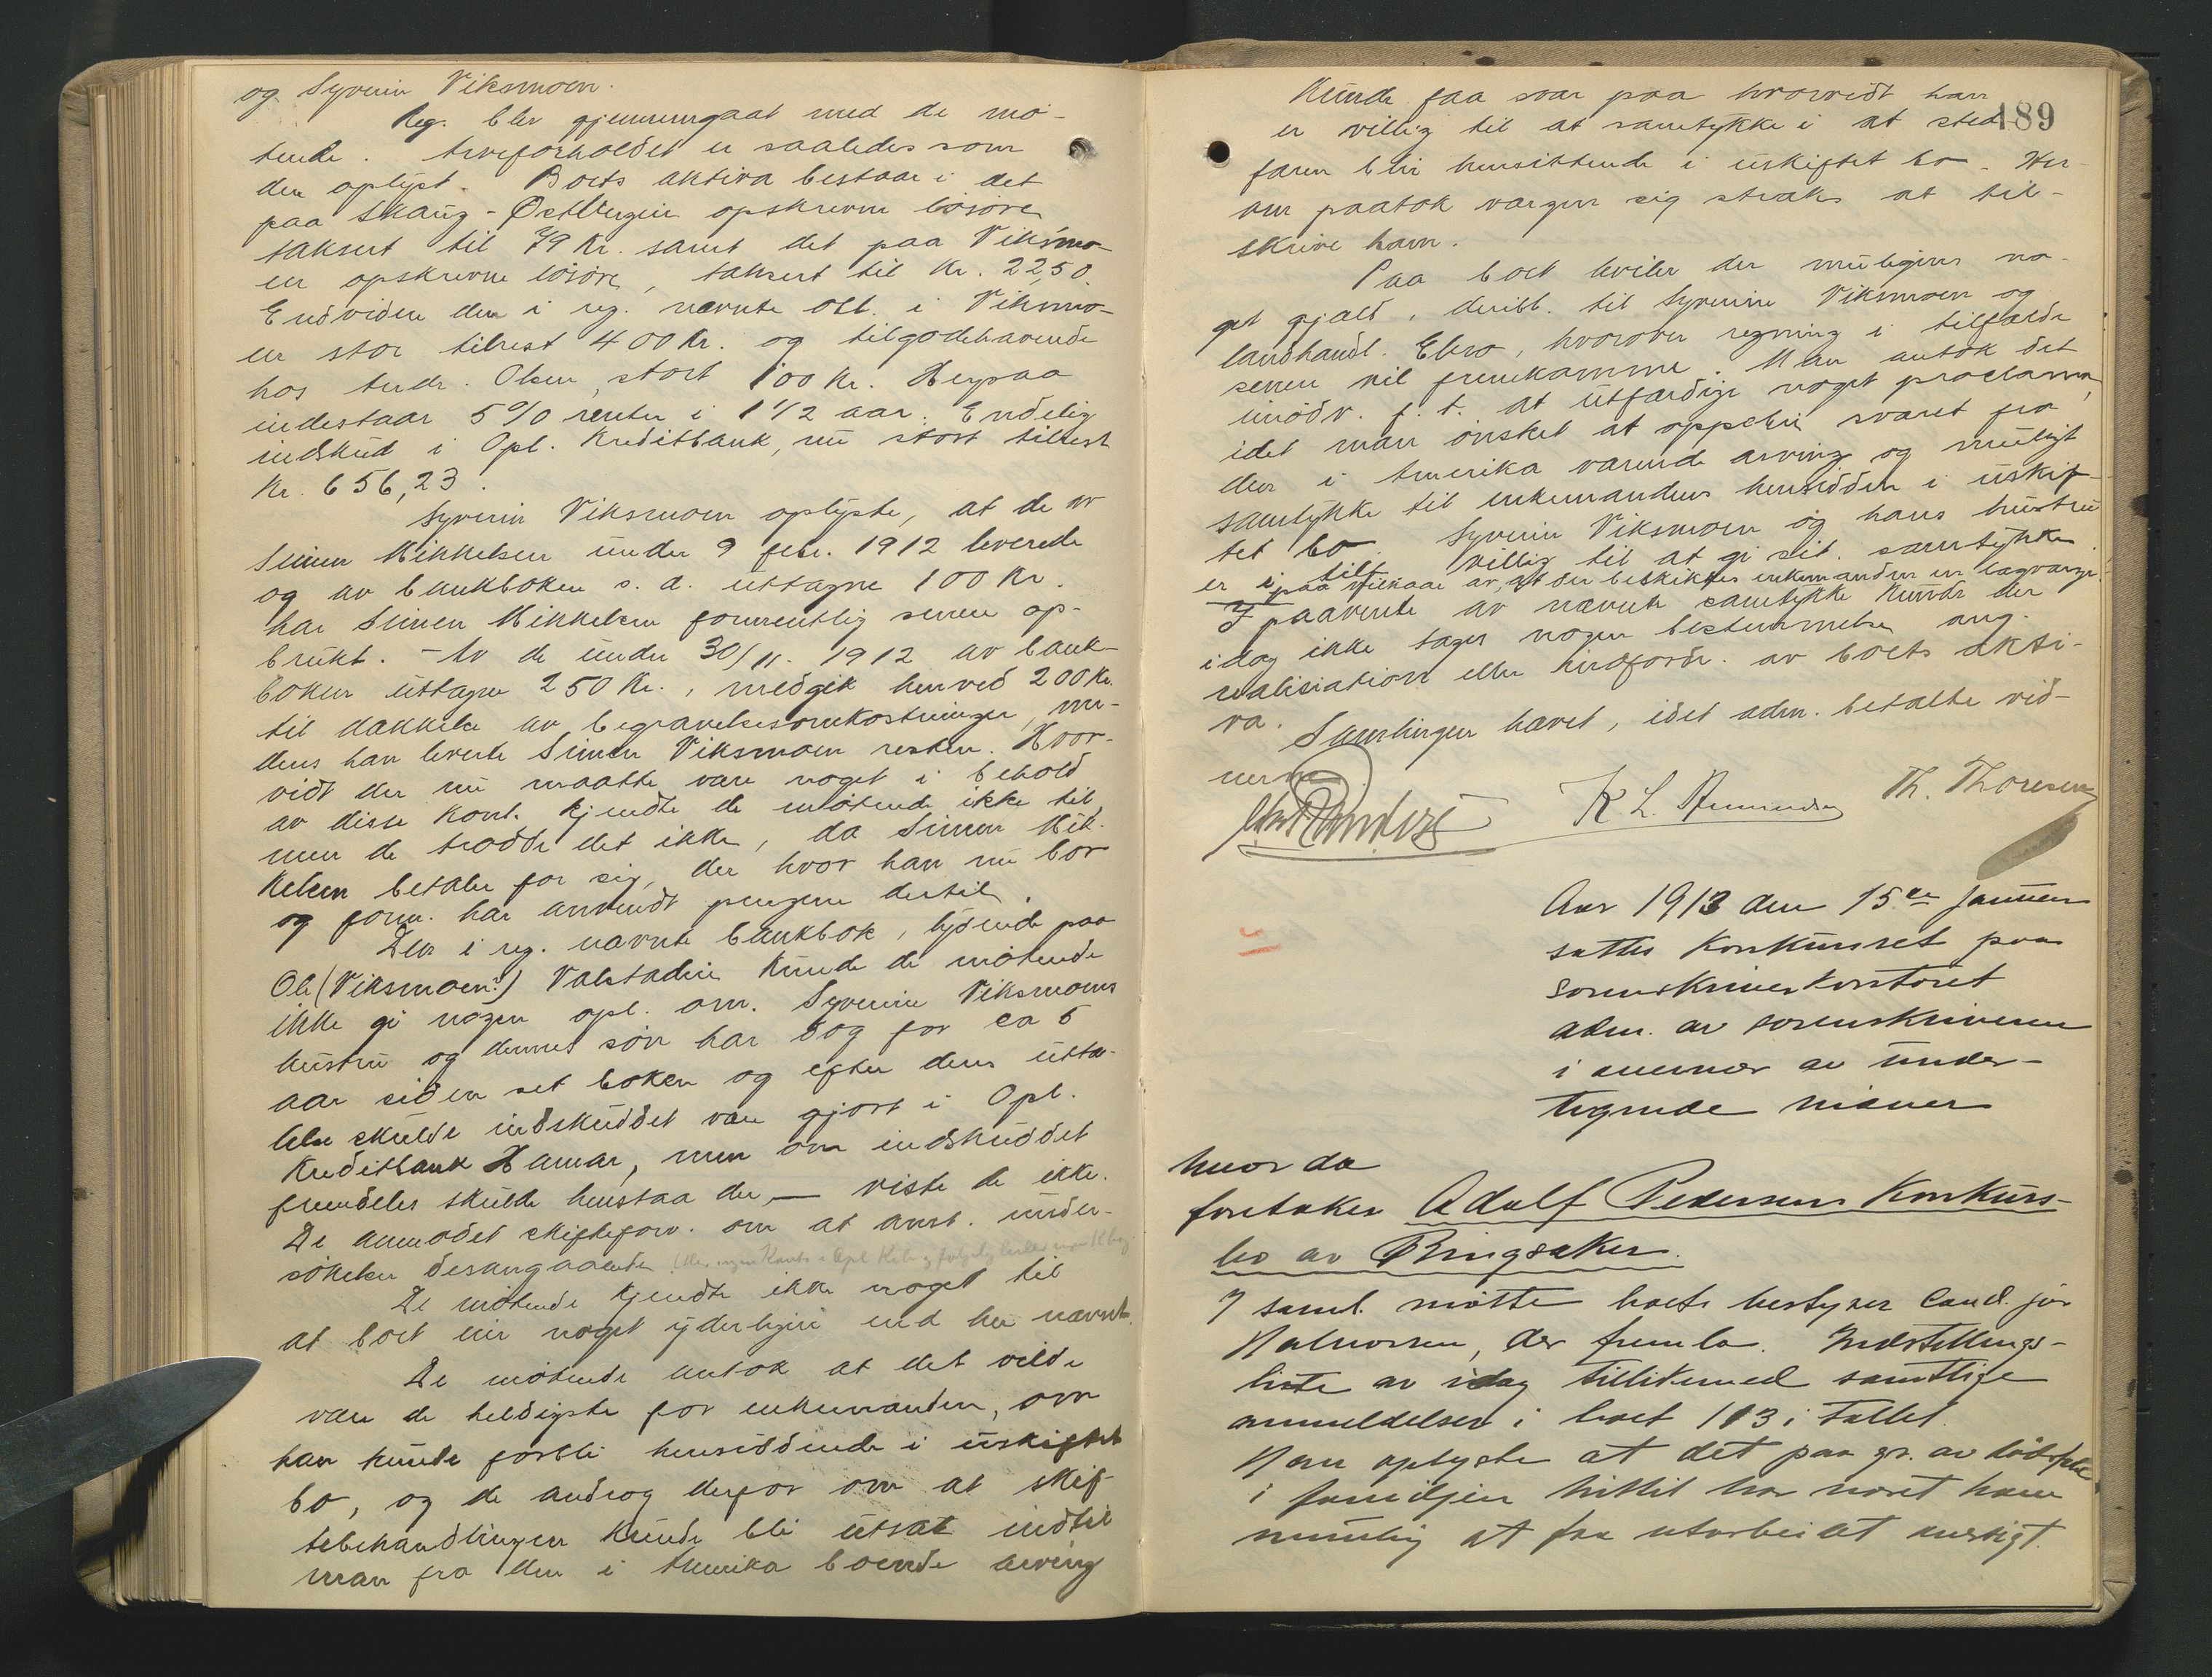 og Syverin Viksmoen.
Reg. blev gjennemgaat med de mø-
tende. Arveforholdet er saaledes som
der oplyst. Boets aktiva bestaar i det
paa Skaug-Østbergeie opskrevne løsøre
taksert til 79 Kr. samt det paa Viksmo-
en opskrevne løsøre, taksert til Kr. 22,50.
Endvidere den i reg. nævnte obl. i Viksmo-
en stor tilrest 400 Kr. og tilgodehavende
hos Andr. Olsen, stort 100 Kr. Herpaa
indestaar 5 % renter i 1 1/2 aar. Endelig
indskud i Opl. Kreditbank, nu stort tilrest
Kr. 656,23.
Syverin Viksmoen oplyste, at de av
Simen Mikkelsen under 9 febr. 1912 leverede
og av bankboken s. d. uttagne 100 Kr.
har Simen Mikkelsen formentlig senere op-
brukt. - Av de under 30/11. 1912 av bank-
boken uttagne 250 Kr., medgik henved 200 Kr.
til dækkelse av begravelsesomkostninger, me-
dens han leverte Simen Viksmoen resten. Hvor-
vidt der nu maatte være noget i behold
av disse kont. kjendte de møtende ikke til,
men de trodde det ikke, da Simen Mik-
kelsen betaler for sig, der hvor han nu bor
og form. har anvendt pengene dertil.
Den i reg. nævnte bankbok, lydende paa
Ole (Viksmoen?) Valstadeie kunde de møtende
ikke gi nogen opl. om. Syverin Viksmoens
hustru og dennes søn har dog for ca 5
aar siden set boken og efter dens utta-
lelse skulde indskuddet være gjort i Opl.
Kreditbank Hamar, men om indskuddet
fremdeles skulde henstaa der, — viste de ikke.
De anmodet skifteforv. om at anst. under-
søkelse desangaaende.
De møtende kjendte ikke noget til
at boet eier noget yderligere end her nævnt.
De møtende antok at det vilde
være de heldigste for enkemanden, om
han kunde forbli hensiddende i uskiftet
bo, og de androg derfor om at skif-
tebehandlingen kunde bli utsat indtil
man fra den i Amerika boende arving
189
kunde faa svar paa hvorvidt han
er villig til at samtykke i at sted-
faren blir hensittende i uskiftet bo. Her-
om paatok vergen sig straks at til-
skrive ham.
Paa boet hviler der muligens no-
get gjæld, deribl. til Syverin Viksmoen og
landhandl. Ebro, hvorover regning i tilfælde
senere vil fremkomme. Man antok det
unødv. f. t. at utfærdige noget proclama,
idet man ønsket at oppebie svaret fra
den i Amerika værende arving og muligt
samtykke til enkemandens hensidden i uskif-
tet bo. Syverin Viksmoen og hans hustru
er i tilf. villig til at gi sit samtykke
paa vilkaar av, at der beskikkes enkemanden en lagværge.
I paavente av nævnte samtykke kunde der
idag ikke tages nogen bestemmelse ang.
realisiation eller inddrivelse av boets akti-
va.
Samlingen hævet, idet adm. betalte vid-
nerne
K L. Amundsen Th. Thoresen
Aar 1913 den 15de januar
sattes Konkursret paa
sorenskriverkontoret
adm. av sorenskriveren
i nærvær av under-
tegnede vidner
hvor da
foretokes Adolf Pedersens Konkurs-
bo av Ringsaker.
I saml. møtte boets bestyrer Cand. jur
Halvorsen, der fremla. Indstillings-
liste av idag tillikemed samtlige
anmeldelser i boet 113 i tallet.
Han oplyste at det paa gr. av dødsfald
i familjen hittil har været ham
umulig at faa utarbeidet oversigt.